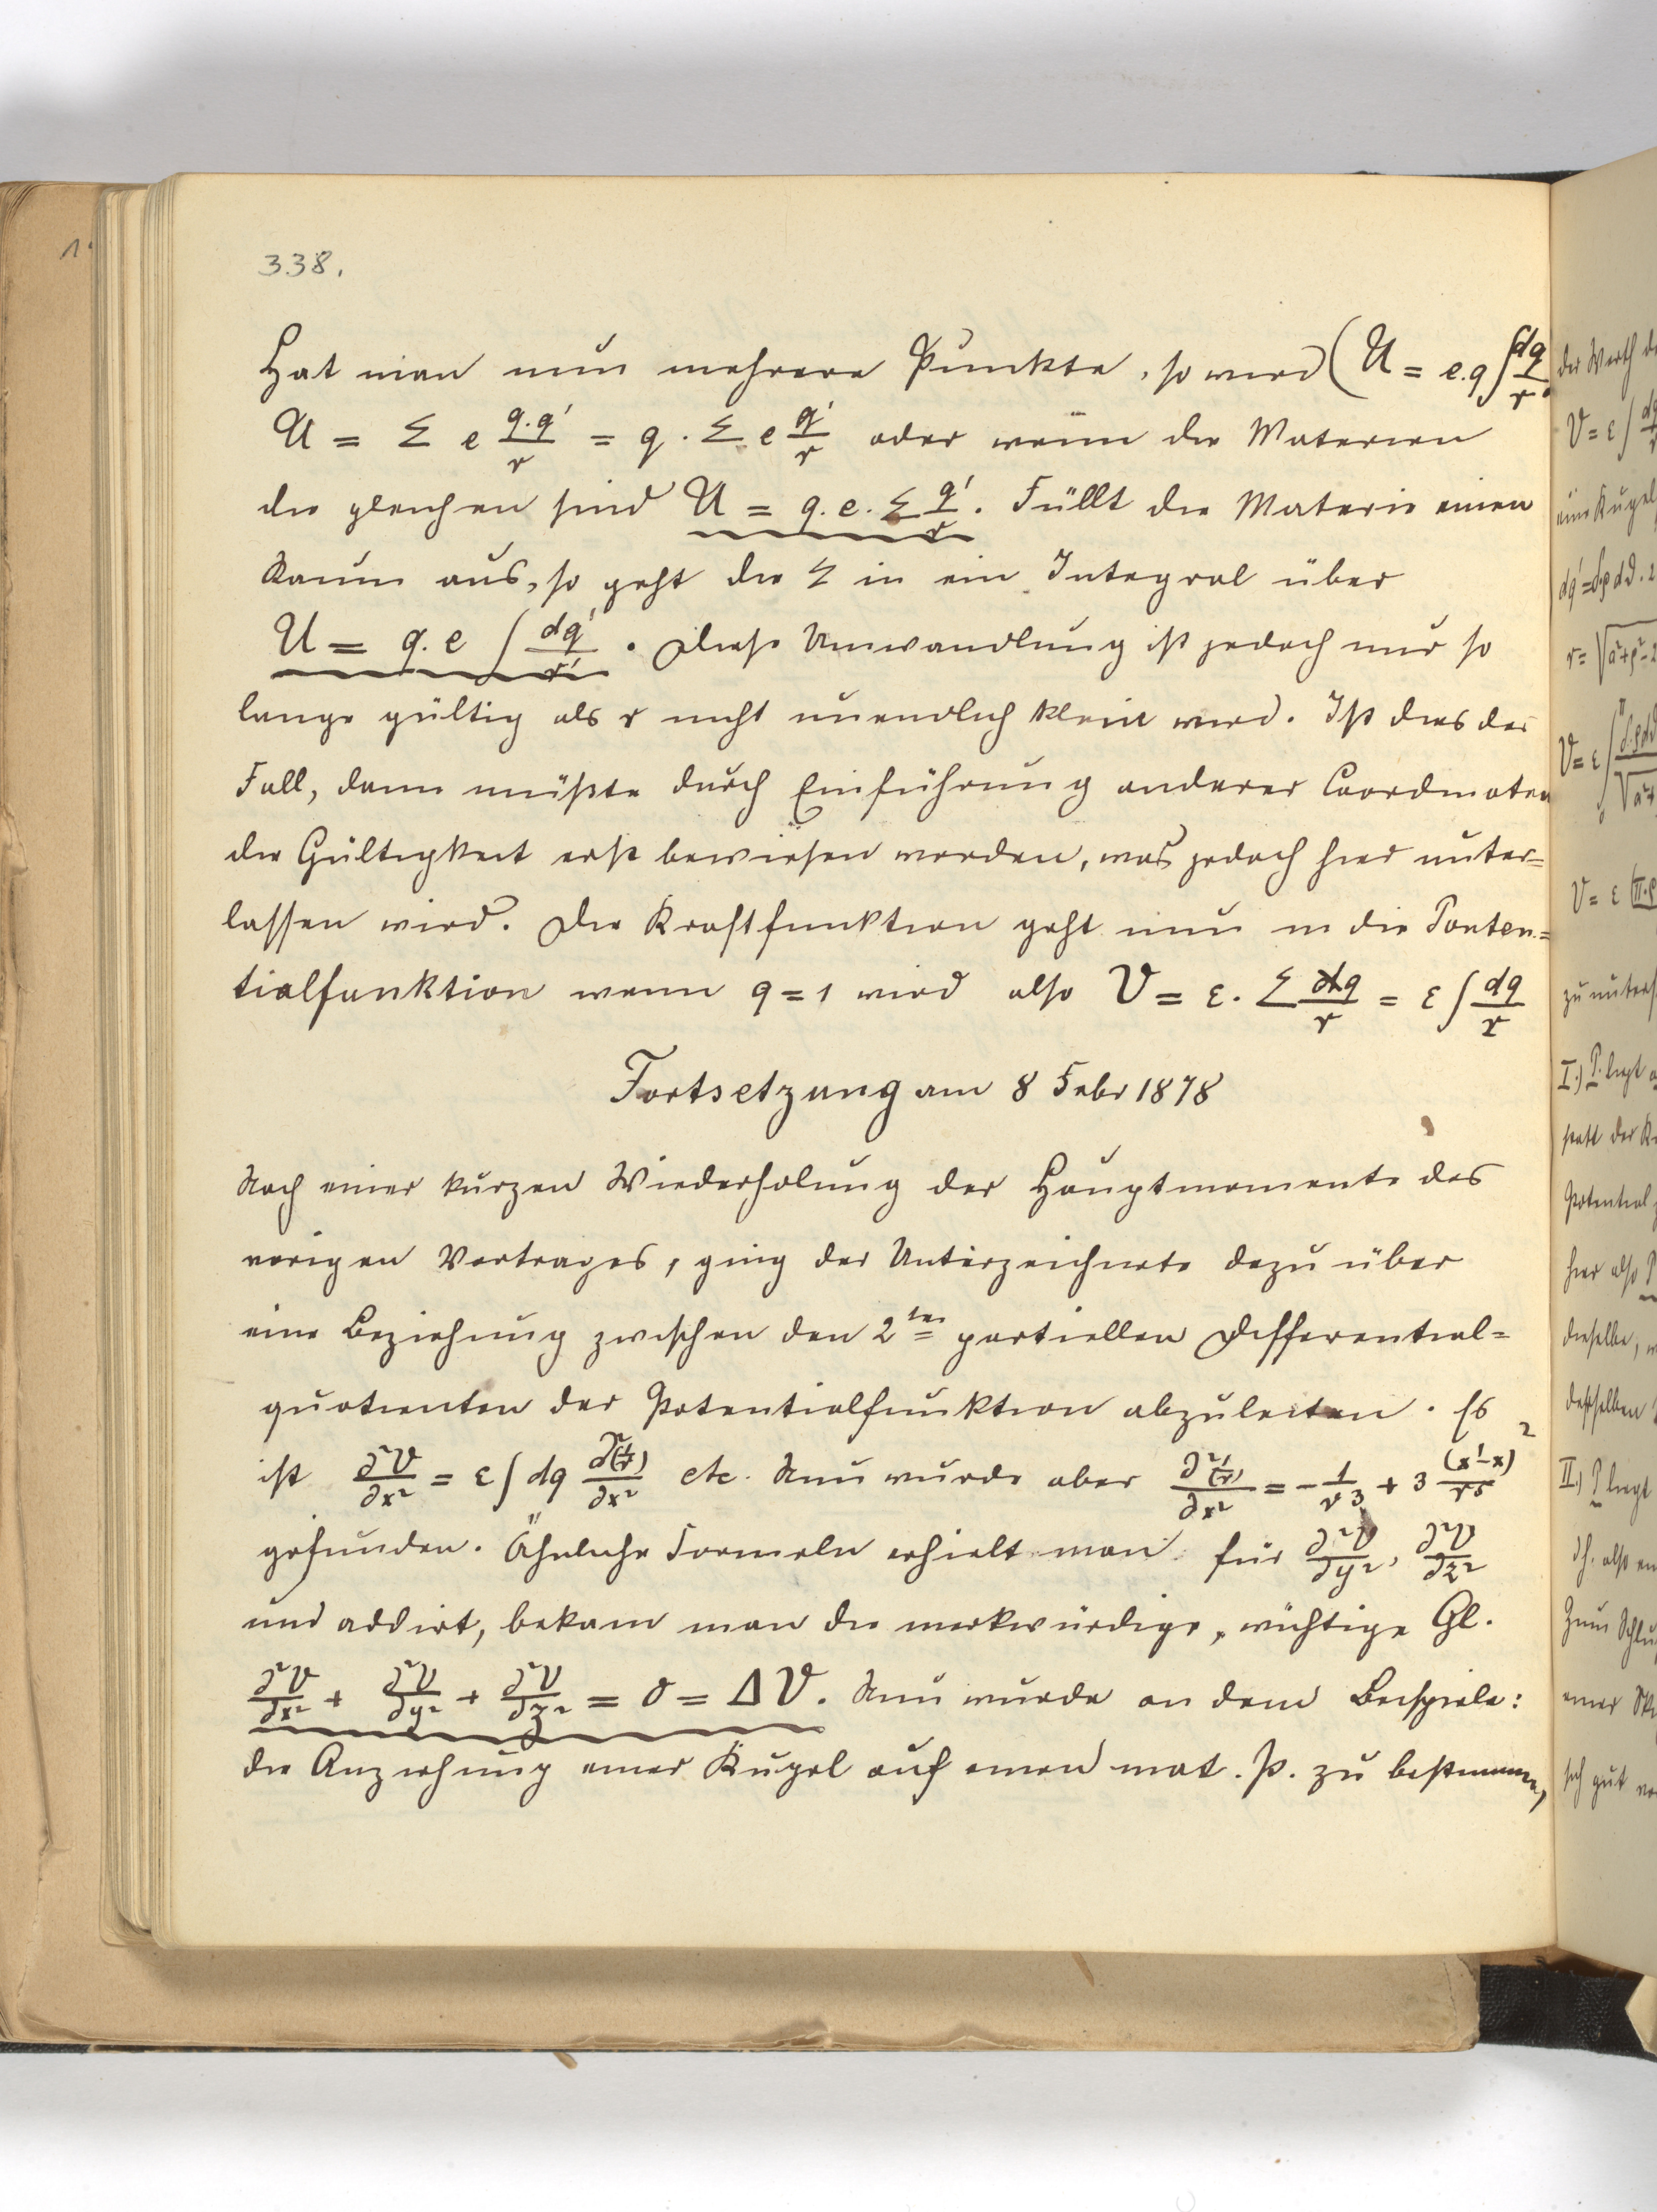 338.
Hat man nun mehrere Punkte, so wird (U = e.q∫dq/r.
U = Σ e q.q'/r = q . Σ e q'/r oder wenn die Materien
die gleichen sind U = q. e. Σ q'/r. Füllt die Materie einen
Raum aus, so geht die Σ in ein Integral über
U = q. e ∫ dq'/r' . Diese Umwandlung ist jedoch nur so
lange gültig als r nicht unendlich klein wird. Ist dies der
Fall, dann müßte durch Einführung anderer Coordinaten
die Gültigkeit erst bewiesen werden, was jedoch hier unter=
lassen wird. Die Kraftfunktion geht nun in die Ponten=
tialfunktion wenn q = 1 wird also V = ε. Σ dq/r = ε ∫ dq/r
Fortsetzung am 8 Febr 1878
Nach einer kurzen Wiederholung der Hauptmomente des
vorigen Vortrages, ging der Unterzeichnete dazu über
eine Beziehung zwischen den 2ten partiellen Differential=
quotienten der Potentialfunktion abzuleiten. Es
ist ∂²V/∂x² = ε ∫ dq ∂²(1/r)/∂x² etc. Nun wurde aber ∂²(1/r)/∂x² = - 1/r3 + 3 (x'-x)²/r5
gefunden. Ähnliche Formeln erhielt man für ∂²V/∂y², ∂²V/∂z²
und addirt, bekam man die merkwürdige, wichtige Gl.
∂²V/∂x² + ∂²V/∂y² + ∂²V/∂z² = 0 = ΔV. Nun wurde an dem Beispiele:
die Anziehung einer Kugel auf einen mat. P. zu bestimmen,
der Werth
V = ε ∫
eine Kugel
V = ε
zu unters
I.) P. liegt
statt der
Potential
hier also
dieselbe,
desselben
II.) P liegt
d.h. also
Zum Schlu
einer
sich gut